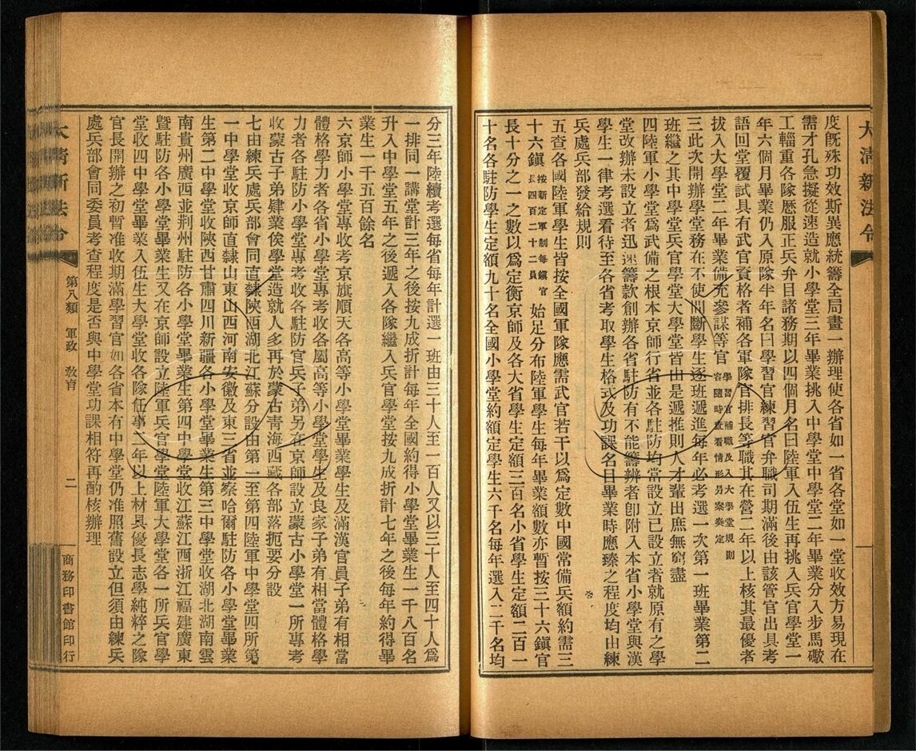 大清新法令
度既殊功效斯異應統籌全局畫一辦理使各省如一省各堂如一堂收效方易現在
需才孔急擬從速造就小學堂三年畢業挑入中學堂中學堂二年畢業分入步馬礮
工輜重各隊歷服正兵弁目諸務期以四個月名曰陸軍入伍生再挑入兵官學堂一
年六個月畢業仍入原隊半年名曰學習官練習官弁職司期滿後由該管官出具考
語回堂覆試具有武官資格者補各軍隊官排長等職其在營二年以上核其最優者
拔入大學堂二年畢業備充參謀等官學習官補職及入大學堂規則容隨時察看情形另案奏定
三此次開辦學堂務在不使間斷學生逐班遞進每年必考選一次第一班畢業第二
班繼之其中學堂兵官學堂大學堂皆由是遞推則人才輩出庶無窮盡
四陸軍小學堂爲武備之根本京師行省並各駐防均當設立已設立者就原有之學
堂改辦未設立者迅速籌款創辦各省駐防有不能籌辦者卽附入本省小學堂與漢
學生一律考選看待至各省考取學生格式及功課名目畢業時應臻之程度均由練
兵處兵部發給規則
五查各國陸軍學生皆按全國軍隊應需武官若干以爲定數中國常備兵額約需三
十六鎭按新定軍制每鎭官長四百二十二員始足分布陸軍學生每年畢業額數亦暫按三十六鎭官
長十分之一之數以爲定衡京師及各大省學生定額三百名小省學生定額二百一
十名各駐防學生定額九十名全國小學堂約額定學生六千名每年選入二千名均
分三年陸續考選每省每年計選一班由三十人至一百人又以三十人至四十人爲
一排同一講堂計三年之後按九成折計每年全國約得小學堂畢業生一千八百名
升入中學堂五年之後遞入各隊繼入兵官學堂按九成折計七年之後每年約得畢
業生一千五百餘名
六京師小學堂專收考京旗順天各高等小學堂畢業學生及滿漢官員子弟有相當
體格學力者各省小學堂專考收各屬高等小學堂學生及良家子弟有相當體格學
力者各駐防小學堂專考收各駐防官兵子弟另在京師設立蒙古小學堂一所專考
收蒙古子弟肄業俟學堂造就人多再於蒙古靑海西藏各部落扼要分設
七由練兵處兵部會同直隸陝西湖北江蘇分設由第一至第四陸軍中學堂四所第
一中學堂收京師直隸山東山西河南安徽及東三省並察哈爾駐防各小學堂畢業
生第二中學堂收陝西甘肅四川新疆各小學堂畢業生第三中學堂收湖北湖南雲
南貴州廣西並荆州駐防各小學堂畢業生第四中學堂收江蘇江西浙江福建廣東
暨駐防各小學堂畢業生又在京師設立陸軍兵官學堂陸軍大學堂各一所兵官學
堂收四中學堂畢業入伍生大學堂收各隊任事二年以上材具優長志學純粹之隊
官長開辦之初暫准收期滿學習官如各省本有中學堂仍准照舊設立但須由練兵
處兵部會同委員考查程度是否與中學堂功課相符再酌核辦理
大淸新法令
第八類 軍政 敎育
二
商務印書館印行